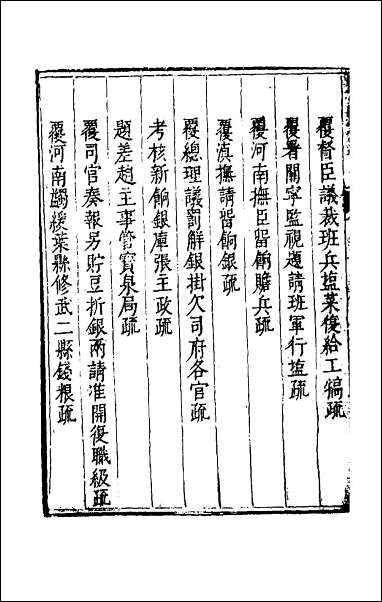 覆督臣議裁班兵塩菜復給工犒疏
覆署關寧監視題請班軍行塩疏
覆河南撫臣留餉贍兵疏
覆滇撫請留餉銀疏
覆總理議罰解銀掛欠司府各官疏
考核新餉銀庫張主政疏
題差趙主事管寶泉局疏
覆司官奏報另貯豆折銀兩請准開復職級疏
覆河南蠲緩葉縣修武二縣錢粮疏